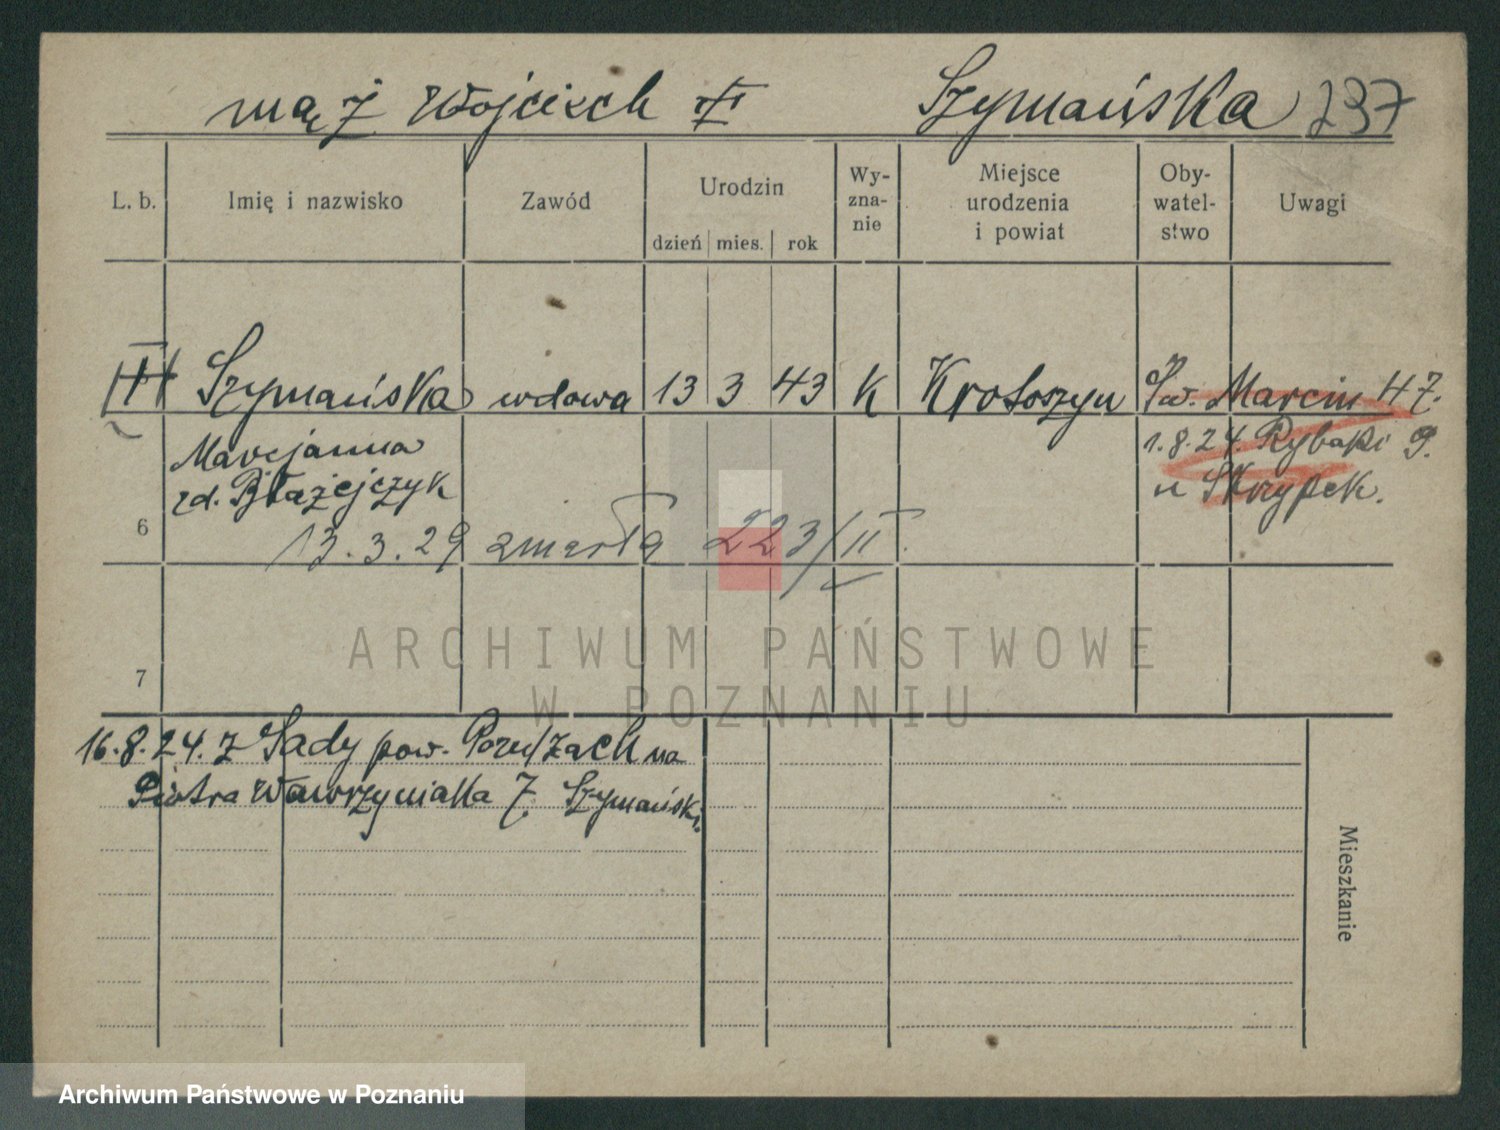 mąż Wojciech ✝ Szymańska 237
L. b. Imię i nazwisko Zawód Urodzin Wy-zna-nie Miejsce urodzenia i powiat Oby-watel-stwo Uwagi
dzień mies. rok
Szymańska wdowa 13 3 43 k Krotoszyn Św. Marcin 47.
Marcjanna 1.8.24. Rybaki 9.
zd. Błażejczyk u Skrzypek.
6 13.3.29 zmarła 223/II.
7
ARCHIWUM PAŃSTWOWE
W POZNANIU
16.8.24. z Sady pow. Pozn/zach na
Piotra Wawrzyniaka 7. Szymański.
Mieszkanie
Archiwum Państwowe w Poznaniu